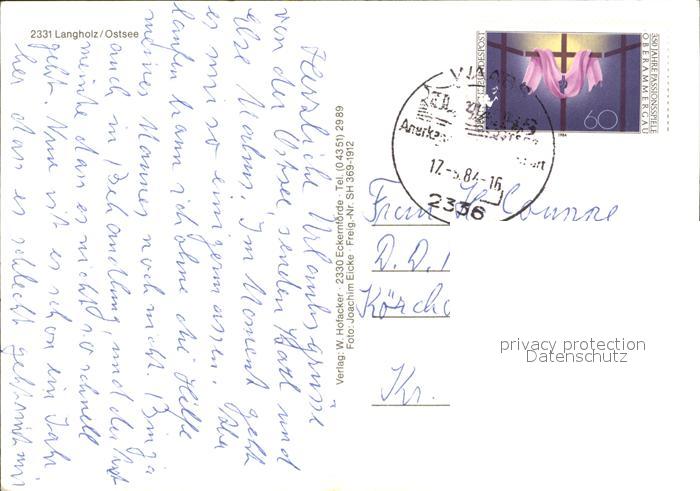 2331 Langholz / Ostsee
Herzliche Urlaubsgrüsse
von der Ostsee, senden Karl und
Else Mahns. Im Moment geht
es mir so einigermassen. Aber
laufen kann ich ohne die Hilfe
meines Mannes noch nicht. Bin ja
auch in Behandlung, und der Arzt
meinte das es nicht so schnell
geht. Nun ist es schon ein Jahr
her das es schlecht geht mit mir
Verlag: W. Hofacker · 2330 Eckernförde · Tel. (04351) 2989
Foto: Joachim Eicke · Freig.-Nr. SH 369-1912
350 JAHRE PASSIONSSPIELE
OBERAMMERGAU
60
17.-5.84-16
2336
Frau
D.D.
Kr.
privacy protection
Datenschutz